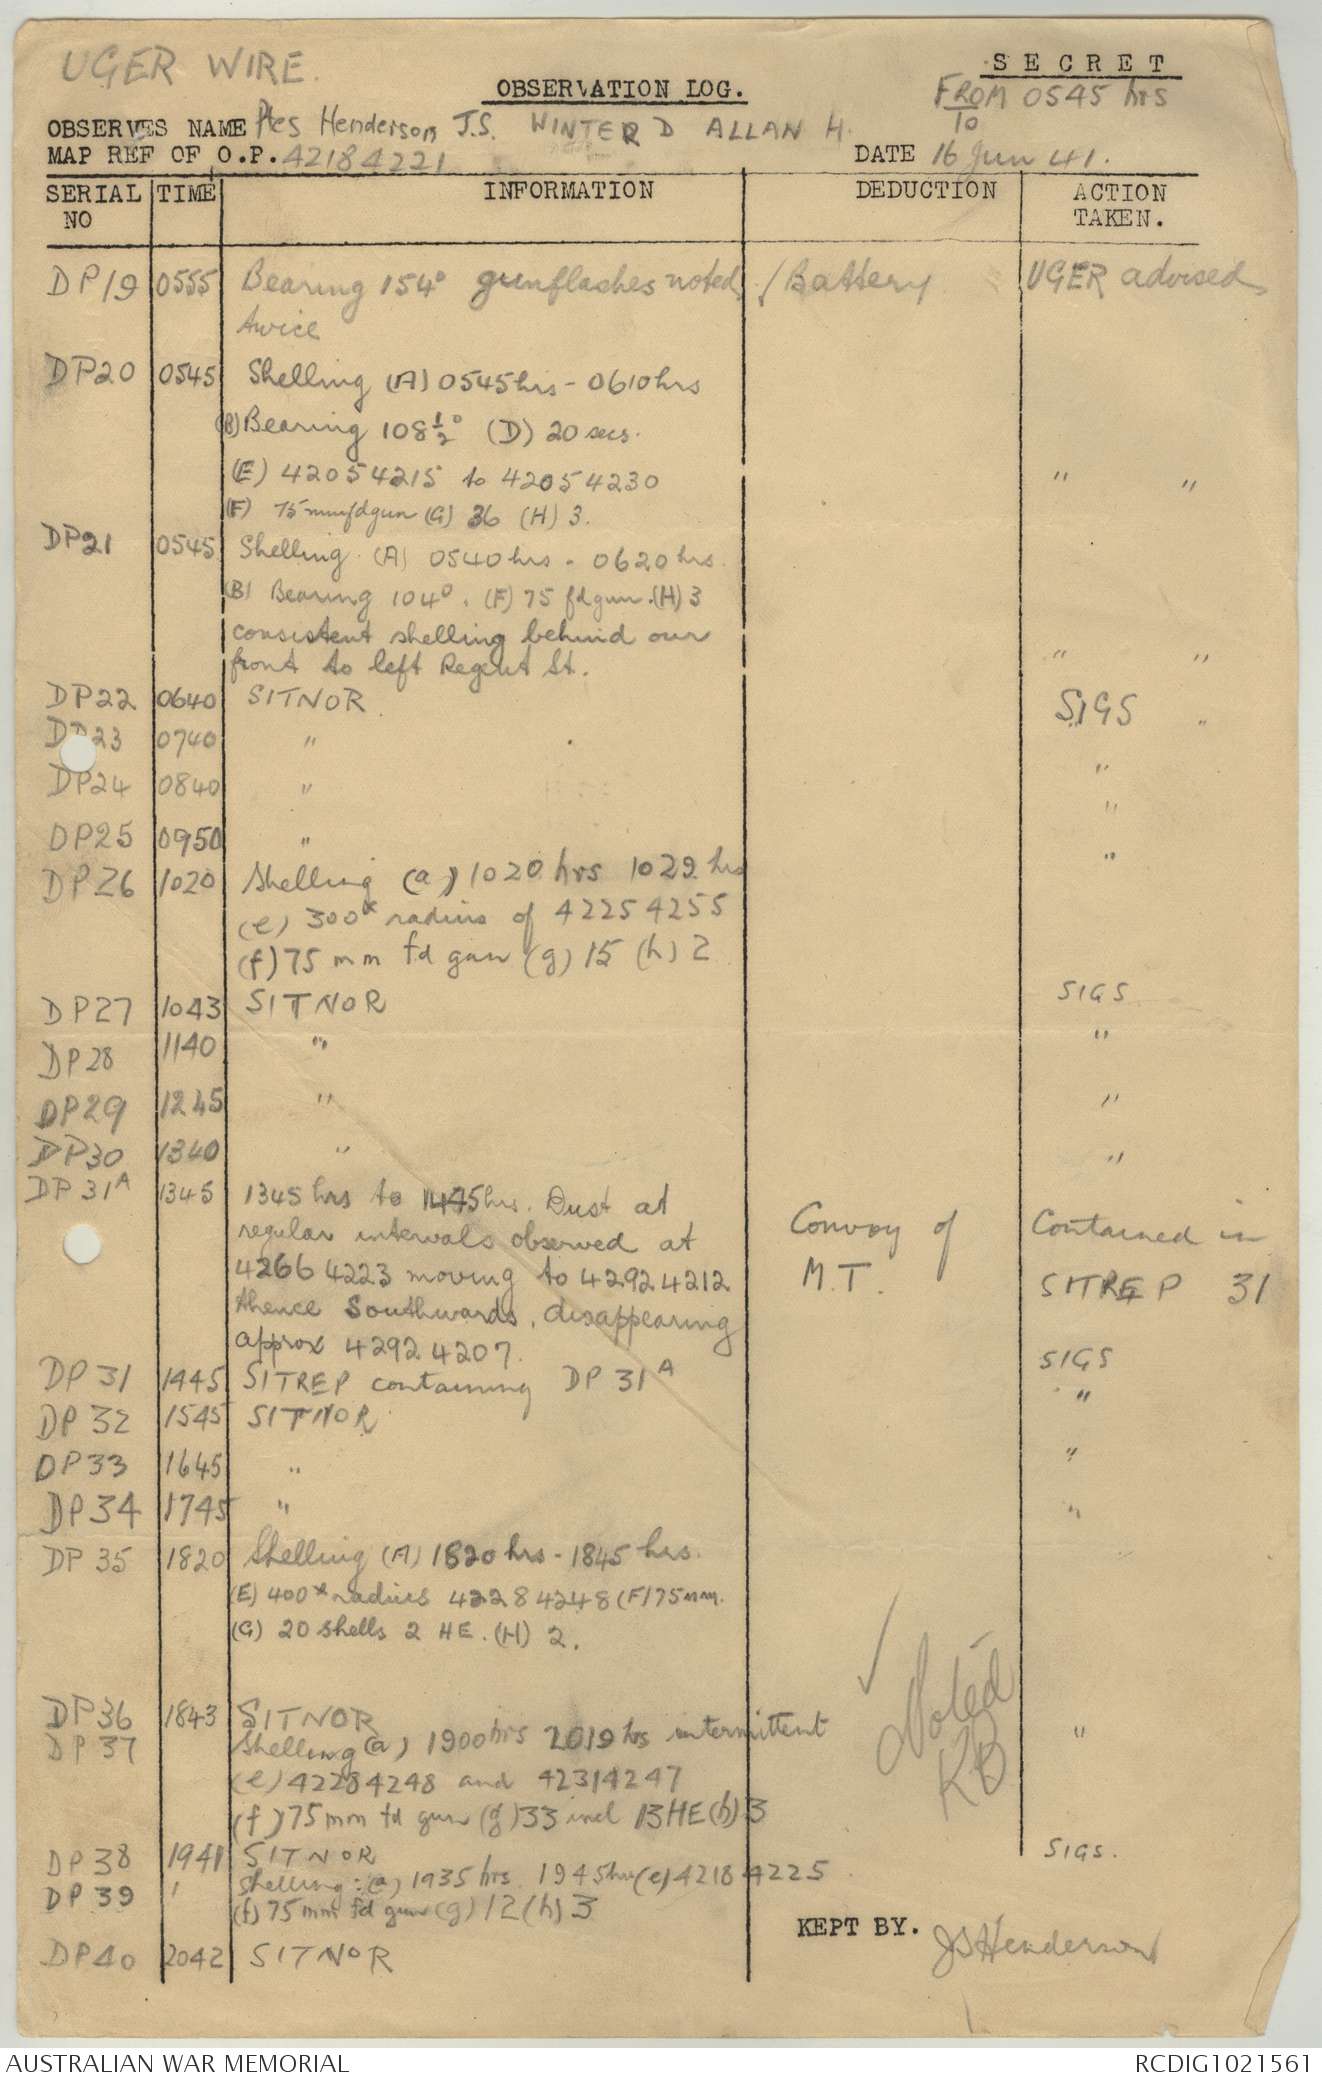 UGER WIRE.
SECRET
OBSERVATION LOG.
FROM 0545 hrs
To
OBSERVES NAME Ptes Henderson J.S. WINTER D ALLAN H.
MAP REF OF O.P. 42184221
DATE 16 Jun 41.
SERIAL NO TIME INFORMATION DEDUCTION ACTION TAKEN.
DP19 0555 Bearing 154° gunflashes noted / Battery UGER advised
twice
DP20 0545 Shelling (A) 0545hrs - 0610hrs
(B) Bearing 108½° (D) 20 secs.
(E) 42054215 to 42054230 " "
(F) 75mmfdgun (G) 36 (H) 3.
DP21 0545 Shelling. (A) 0540hrs - 0620hrs.
(B) Bearing 104°. (F) 75 fdgun. (H) 3
consistent shelling behind our
front to left Regent St. " "
DP22 0640 SITNOR SIGS "
DP23 0740 " "
DP24 0840 " "
DP25 0950 " "
DP26 1020 Shelling (a) 1020 hrs 1029 hrs
(e) 300x radius of 42254255
(f) 75 mm fd gun (g) 15 (h) 2
DP27 1043 SITNOR SIGS
DP28 1140 " "
DP29 1245 " "
DP30 1340 " "
DP31A 1345 1345hrs to 1445hrs. Dust at
regular intervals observed at Convoy of Contained in
42664223 moving to 42924212 M.T. SITREP 31
thence Southwards, disappearing
approx 42924207. SIGS
DP31 1445 SITREP containing DP31A "
DP32 1545 SITNOR
DP33 1645 " "
DP34 1745 " "
DP35 1820 Shelling (A) 1820hrs - 1845 hrs.
(E) 400x radius 42284248 (F) 75mm.
(G) 20 shells 2 HE. (H) 2.
Noted
KB
DP36 1843 SITNOR "
DP37 Shelling (a) 1900hrs 2019hrs intermittent
(e) 42284248 and 42314247
(f) 75mm fd gun (g) 33 incl 13HE (h) 3
DP38 1941 SITNOR SIGS.
DP39 ' Shelling: (a) 1935 hrs. 1945hrs (e) 42184225
(f) 75mm fd gun (g) 12 (h) 3
KEPT BY. JSHenderson
DP40 2042 SITNOR
AUSTRALIAN WAR MEMORIAL
RCDIG1021561